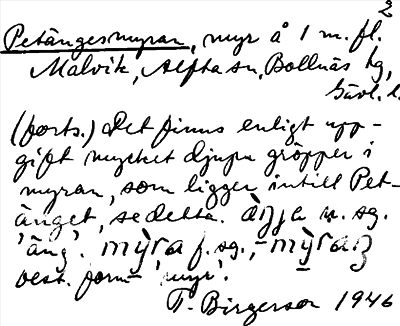 2
Petängesmyran, myr å 1 m. fl.
Malvik, Alfta sn, Bollnäs tg,
Gävl. l.
(forts.) Det finns enligt upp-
gift mycket djupa gröpper i
myran, som ligger intill Pet-
änget, se detta. àŋ̀a n. sg.
'äng'. mỳra f. sg., - mỳraŋ
best. form 'myr'.
T. Birgerson 1946